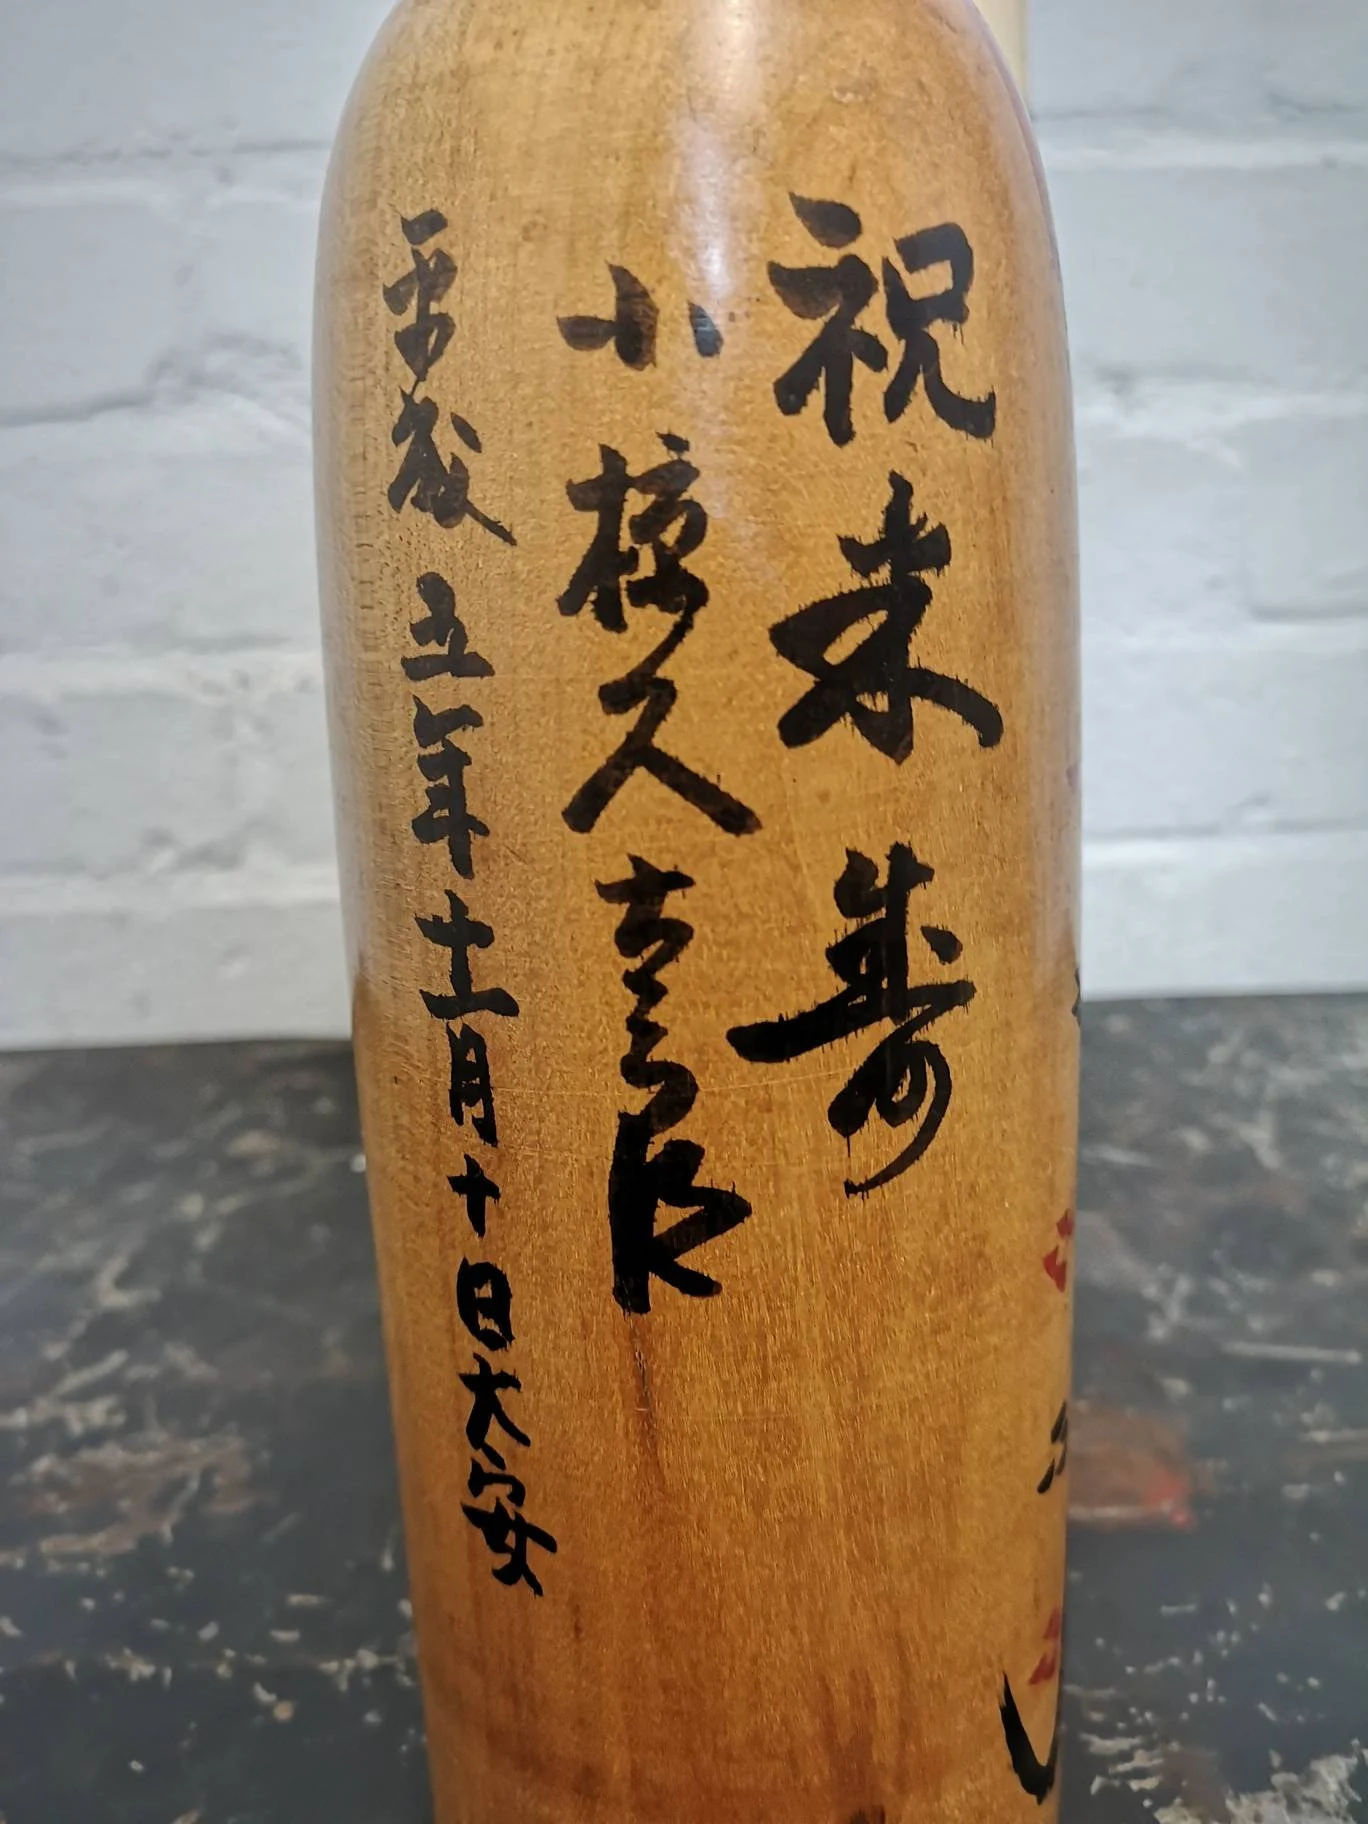 祝米寿
小椋久太郎
平成五年十一月十日大安